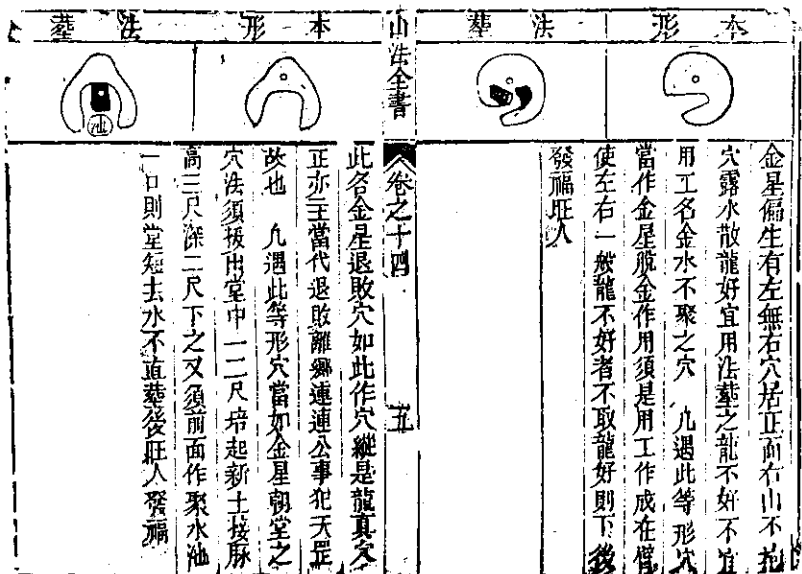 本形
法塟
金星偏生有左無右穴居正面右山不抱
穴露水散龍好宜用法塟之龍不好不宜
用工名金水不聚之穴 凡遇此等形穴
當作金星脫金作用須是用工作成在臂
使左右一般龍不好者不取龍好則下後
發福旺人
山法全書
卷之十四
五
本形
法塟
池
此各金星退敗穴如此作穴縱是龍真穴
正亦主當代退敗離鄉連連公事犯天罡
故也 凡遇此等形穴當如金星朝堂之
穴法須扳出堂中一二尺培起新土接脉
高三尺深二尺下之又須前面作聚水池
一口則堂短去水不直塟後旺人發福